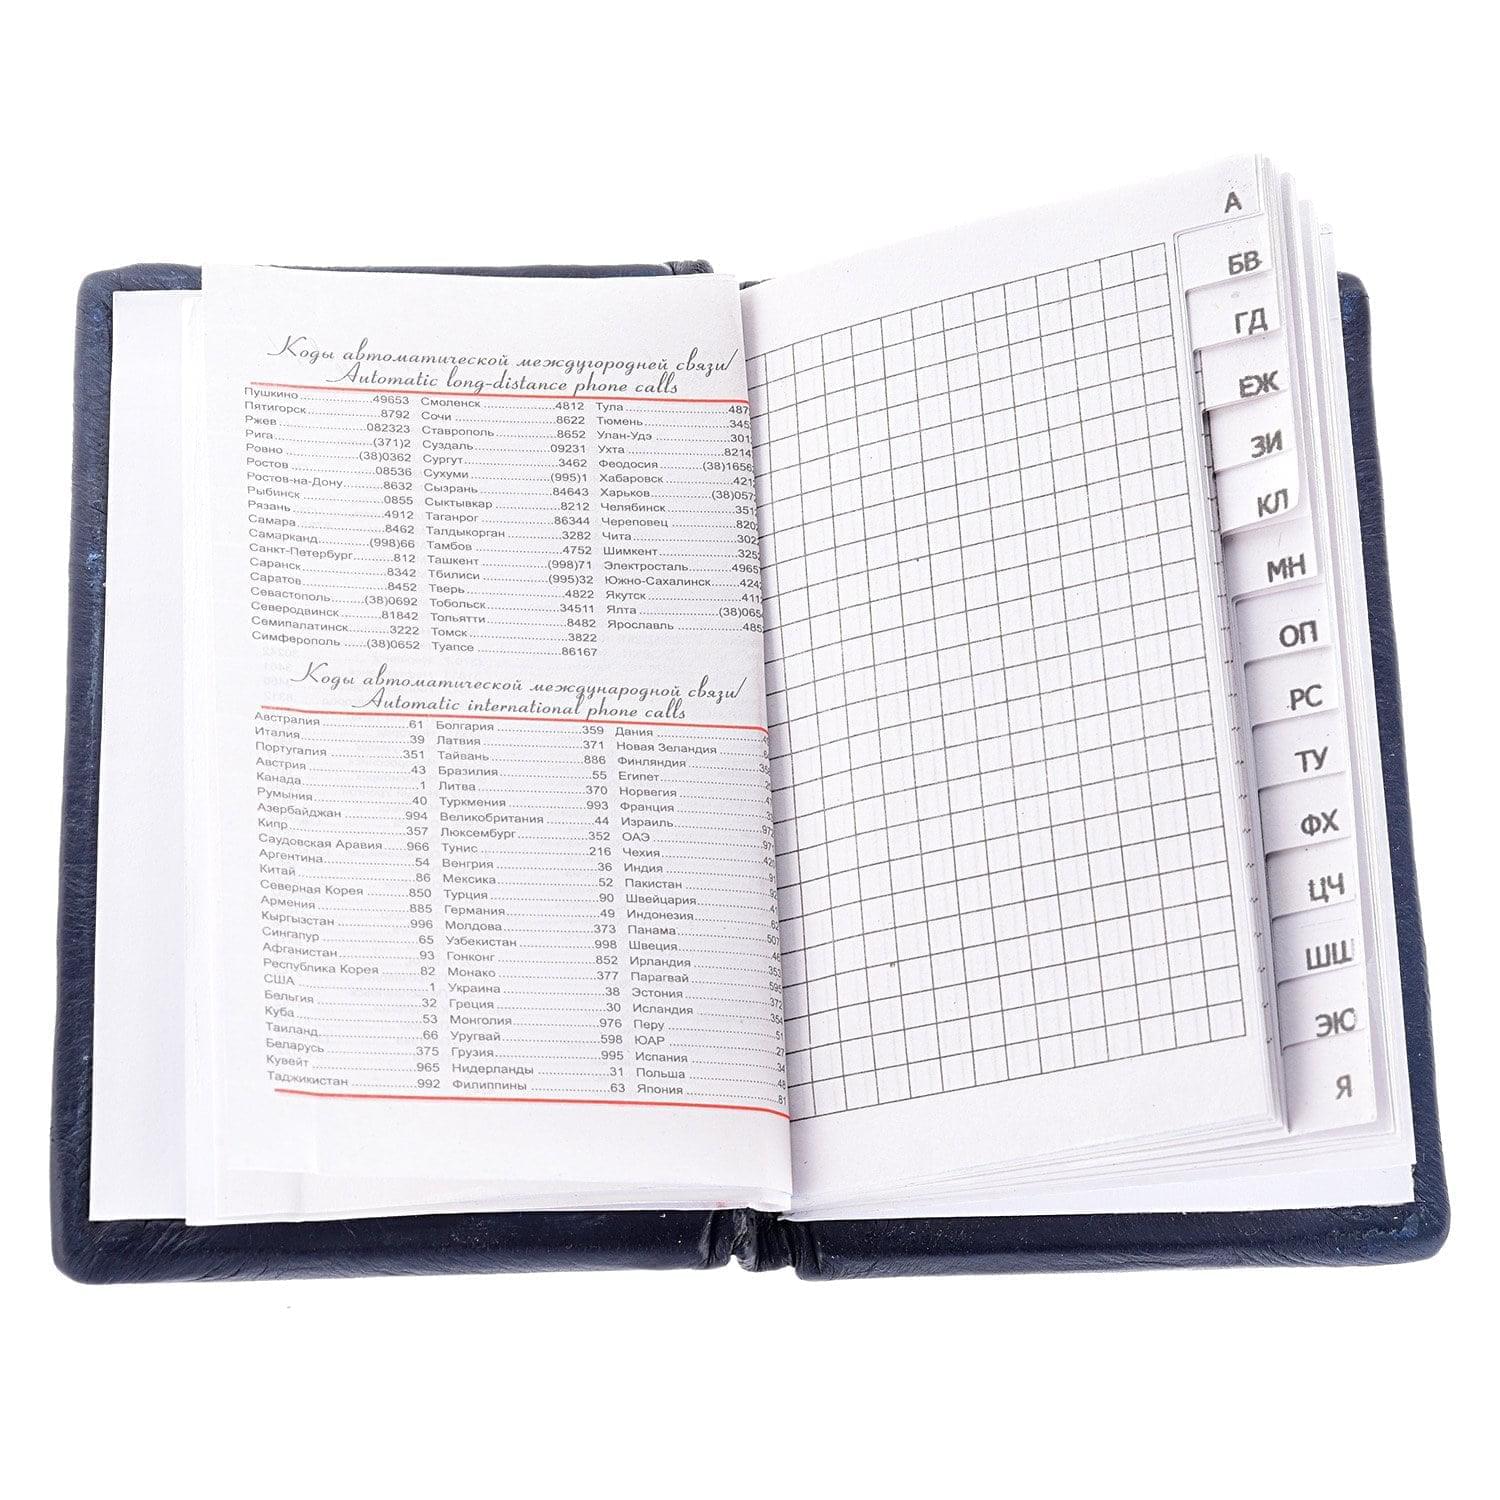 Коды автоматической междугородней связи/
Automatic long-distance phone calls
Пушкино ..................49653
Пятигорск ..................8792
Ржев ..................082323
Рига ..................(371)2
Ровно ..................(38)0362
Ростов ..................08536
Ростов-на-Дону..........8632
Рыбинск ..................0855
Рязань ..................4912
Самара ..................8462
Самарканд..........(998)66
Санкт-Петербург..........812
Саранск ..................8342
Саратов ..................8452
Севастополь..........(38)0692
Северодвинск ..........81842
Семипалатинск ..........3222
Симферополь ......(38)0652
Смоленск ..................4812
Сочи ..................8622
Ставрополь ..................8652
Суздаль ..................09231
Сургут..................3462
Сухуми ..................(995)1
Сызрань ..................84643
Сыктывкар ..................8212
Таганрог ..................86344
Талдыкорган ..........3282
Тамбов ..................4752
Ташкент ..................(998)71
Тбилиси ..................(995)32
Тверь ..................4822
Тобольск ..................34511
Тольятти ..................8482
Томск ..................3822
Туапсе ..................86167
Тула ..................487
Тюмень ..................345
Улан-Удэ ..................301
Ухта ..................8214
Феодосия ..........(38)1656
Хабаровск ..................421
Харьков ..................(38)057
Челябинск ..................351
Череповец ..................820
Чита ..................302
Шимкент ..................325
Электросталь ..........4965
Южно-Сахалинск..........424
Якутск ..................411
Ялта ..................(38)065
Ярославль ..................485
Коды автоматической международной связи/
Automatic international phone calls
Австралия ..................61
Италия ..................39
Португалия ..................351
Австрия ..................43
Канада ..................1
Румыния ..................40
Азербайджан ..........994
Кипр ..................357
Саудовская Аравия .....966
Аргентина ..................54
Китай ..................86
Северная Корея ..........850
Армения ..................885
Кыргызстан ..................996
Сингапур ..................65
Афганистан ..................93
Республика Корея ........82
США ..................1
Бельгия ..................32
Куба ..................53
Таиланд ..................66
Беларусь ..................375
Кувейт ..................965
Таджикистан ..........992
Болгария ..................359
Латвия ..................371
Тайвань ..................886
Бразилия ..................55
Литва ..................370
Туркмения ..................993
Великобритания ..........44
Люксембург ..................352
Тунис ..................216
Венгрия ..................36
Мексика ..................52
Турция ..................90
Германия ..................49
Молдова ..................373
Узбекистан ..................998
Гонконг ..................852
Монако ..................377
Украина ..................38
Греция ..................30
Монголия ..................976
Уругвай ..................598
Грузия ..................995
Нидерланды ..........31
Филиппины ..........63
Дания
Новая Зеландия
Финляндия
Египет
Норвегия
Франция
Израиль ..................972
ОАЭ
Чехия ..................420
Индия
Пакистан
Швейцария
Индонезия ..................62
Панама ..................507
Швеция ..................46
Ирландия ..................353
Парагвай ..................595
Эстония ..................372
Исландия ..................354
Перу ..................51
ЮАР ..................27
Испания ..................34
Польша ..................48
Япония ..................81
А
БВ
ГД
ЕЖ
ЗИ
КЛ
МН
ОП
РС
ТУ
ФХ
ЦЧ
ШЩ
ЭЮ
Я